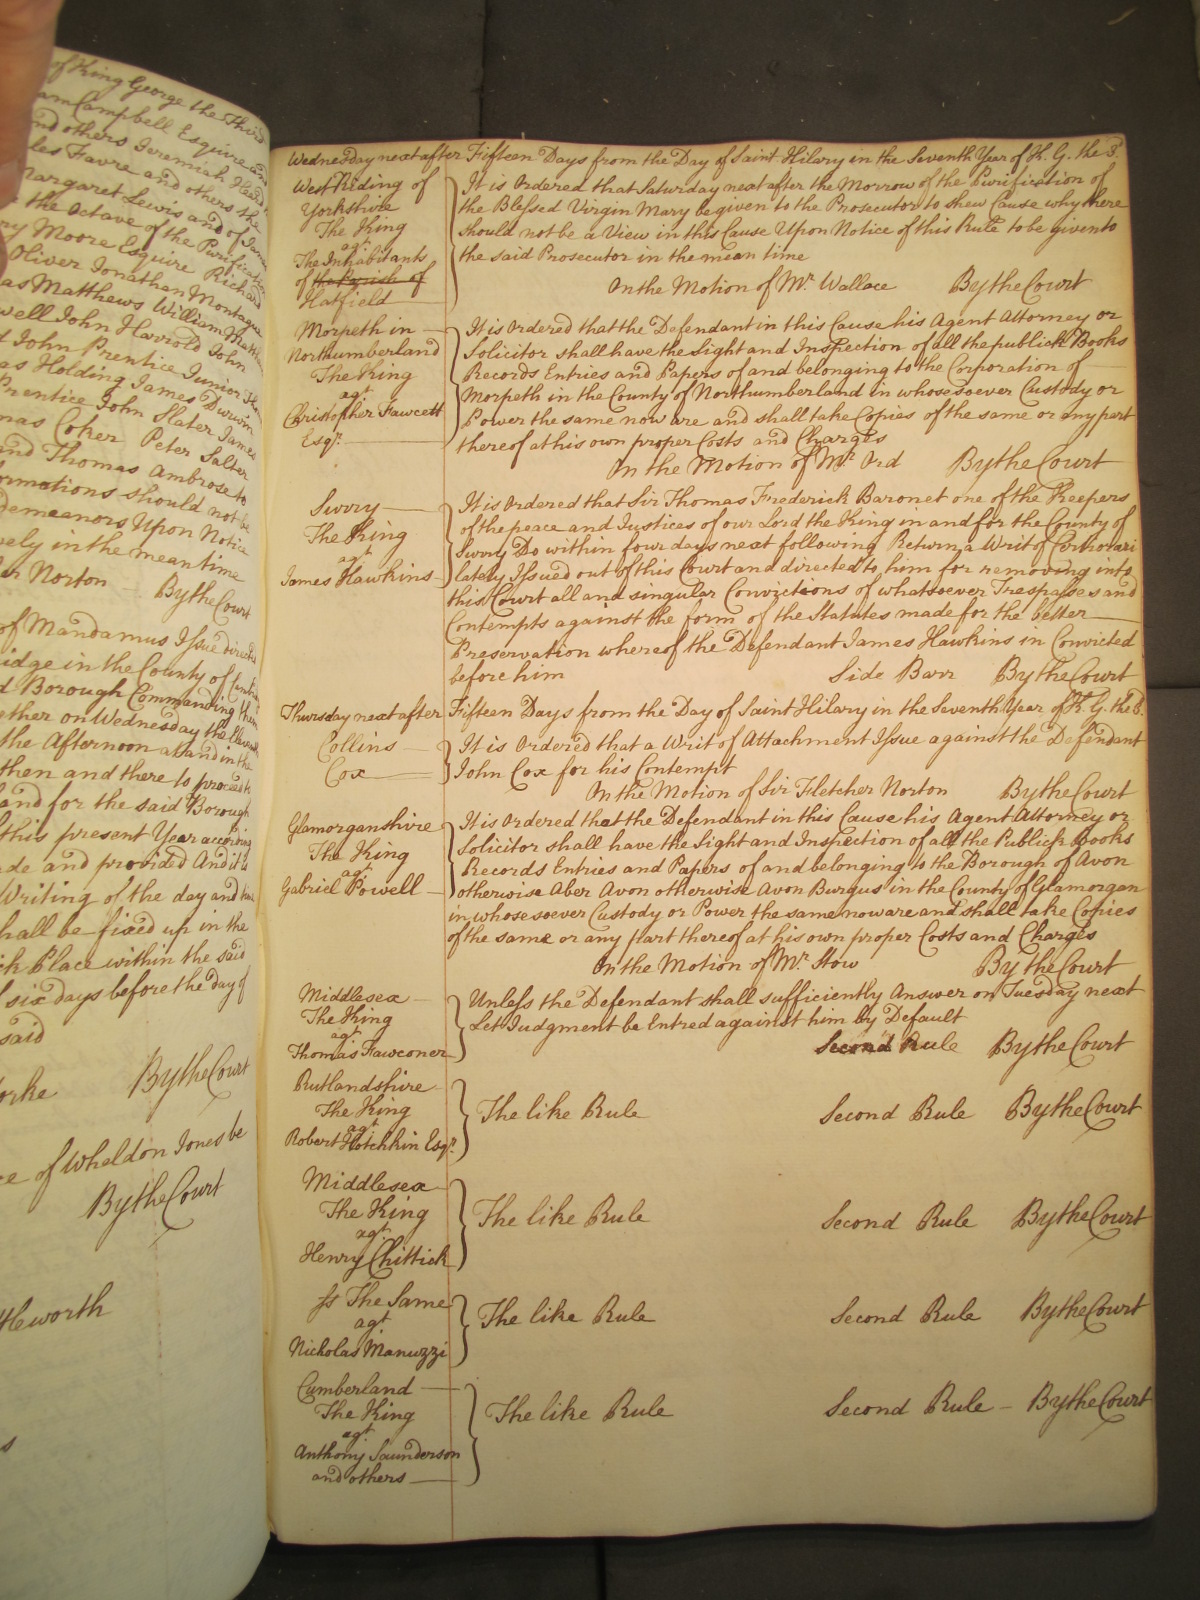 of King George the Third
am Campbell Esquire and
and others Jeremiah Heard
les Favre and others the
Margaret Lewis and of James
the Octave of the Purification
ry Moore Esquire Richard
Oliver Jonathan Montague
as Matthews William
well John Harrold John
John Prentice Junior
as Holding James Durwin
Prentice John Slater James
mas Coker Peter Salter
and Thomas Ambrose to
ormations should not be
Demeanors Upon Notice
vely in the mean time
Norton By the Court
of Mandamus Issue directed
idge in the County of
d Borough Commanding them
ether on Wednesday the
the Afternoon at and in the
then and there to proceed to
and for the said Borough
this present Year according
de and provided And it is
Writing of the day and
hall be fixed up in the
ck Place within the said
six days before the day of
said
orke By the Court
ce of Wheldon Jones be
By the Court
tleworth
s
Wednesday next after Fifteen Days from the Day of Saint Hilary in the Seventh Year of K. G. the 3.
West Riding of
Yorkshire
The King
agt
The Inhabitants
of the Parish of
Hatfield
It is Ordered that Saturday next after the Morrow of the Purification of
the Blessed Virgin Mary be given to the Prosecutor to shew Cause why there
should not be a View in this Cause Upon Notice of this Rule to be given to
the said Prosecutor in the mean time
On the Motion of Mr. Wallace By the Court
Morpeth in
Northumberland
The King
agt
Christopher Fawcett
Esqr.
It is Ordered that the Defendant in this Cause his Agent Attorney or
Solicitor shall have the Sight and Inspection of all the publick Books
Records Entries and Papers of and belonging to the Corporation of
Morpeth in the County of Northumberland in whosesoever Custody or
Power the same now are and shall take Copies of the same or any part
thereof at his own proper Costs and Charges
On the Motion of Mr. Ord By the Court
Surry
The King
agt
James Hawkins
It is Ordered that Sir Thomas Frederick Baronet one of the Keepers
of the peace and Justices of our Lord the King in and for the County of
Surry Do within four days next following Return a Writ of Certiorari
lately Issued out of this Court and directed to him for removing into
this Court all and singular Convictions of whatsoever Trespasses and
Contempts against the form of the Statutes made for the better
Preservation whereof the Defendant James Hawkins in Convicted
before him Side Barr By the Court
Thursday next after Fifteen Days from the Day of Saint Hilary in the Seventh Year of K. G. the 3.
Collins
Cox
It is Ordered that a Writ of Attachment Issue against the Defendant
John Cox for his Contempt
On the Motion of Sir Fletcher Norton By the Court
Glamorganshire
The King
agt
Gabriel Powell
It is Ordered that the Defendant in this Cause his Agent Attorney or
Solicitor shall have the Sight and Inspection of all the Publick Books
Records Entries and Papers of and belonging to the Borough of Avon
otherwise Aber Avon otherwise Avon Burgus in the County of Glamorgan
in whosesoever Custody or Power the same now are and shall take Copies
of the same or any part thereof at his own proper Costs and Charges
On the Motion of Mr. Stow By the Court
Middlesex
The King
agt
Thomas Fawconer
Unless the Defendant shall sufficiently Answer on Tuesday next
Let Judgment be Entred against him by Default
Second Rule By the Court
Rutlandshire
The King
agt
Robert Hotchkin Esqr.
The like Rule Second Rule By the Court
Middlesex
The King
agt
Henry Chittick
The like Rule Second Rule By the Court
ss The Same
agt
Nicholas Manuzzi
The like Rule Second Rule By the Court
Cumberland
The King
agt
Anthony Saunderson
and others
The like Rule Second Rule By the Court